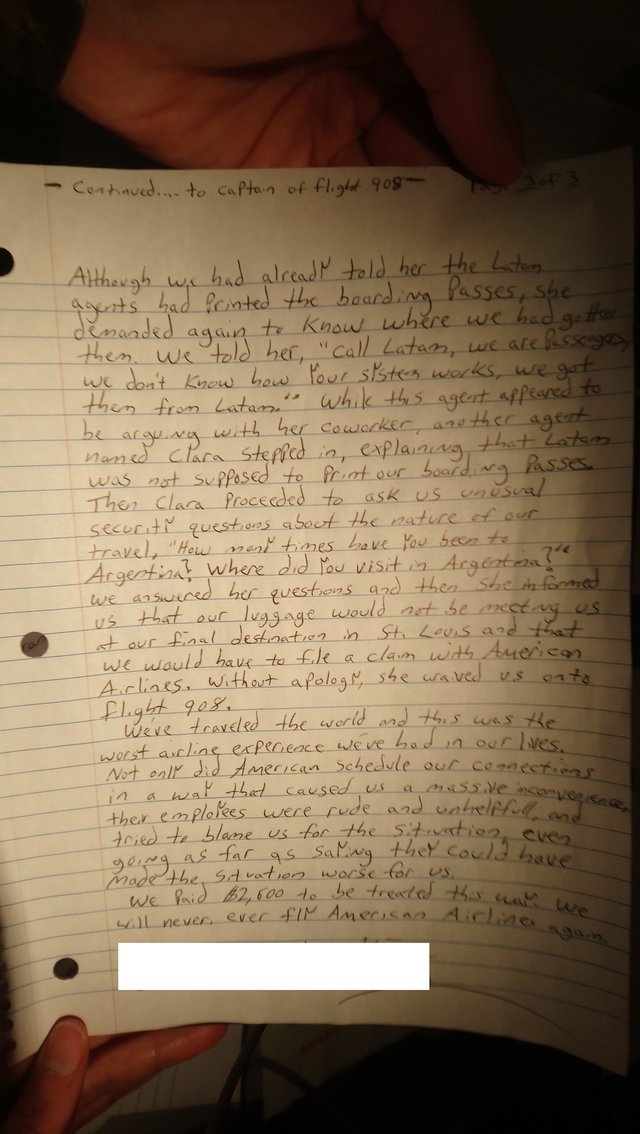 - Continued.... to captain of flight 908 - Page 3 of 3
Although we had already told her the Latam
agents had printed the boarding passes, she
demanded again to know where we had gotten
them. We told her, "Call Latam, we are passengers,
we don't know how your system works, we got
them from Latam." While this agent appeared to
be arguing with her coworker, another agent
named Clara stepped in, explaining that Latam
was not supposed to print our boarding passes.
Then Clara proceeded to ask us unusual
security questions about the nature of our
travel, "How many times have you been to
Argentina? Where did you visit in Argentina?"
We answered her questions and then she informed
us that our luggage would not be meeting us
at our final destination in St. Louis and that
we would have to file a claim with American
Airlines. Without apology, she waived us onto
flight 908.
We've traveled the world and this was the
worst airline experience we've had in our lives.
Not only did American schedule our connections
in a way that caused us a massive inconvenience,
their employees were rude and unhelpfull, and
tried to blame us for the situation, even
going as far as saying they could have
made the situation worse for us.
We paid $2,600 to be treated this way. We
will never, ever fly American Airlines again.